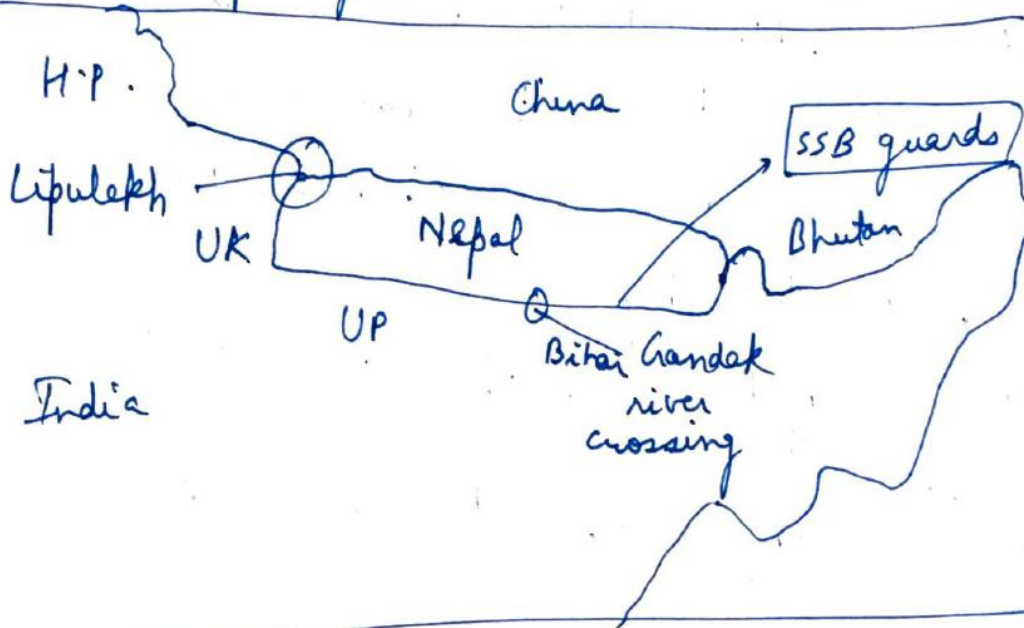 H.P.
China
SSB guards
Lipulekh
UK
Nepal
Bhutan
UP
Bihar Gandak
river
crossing
India